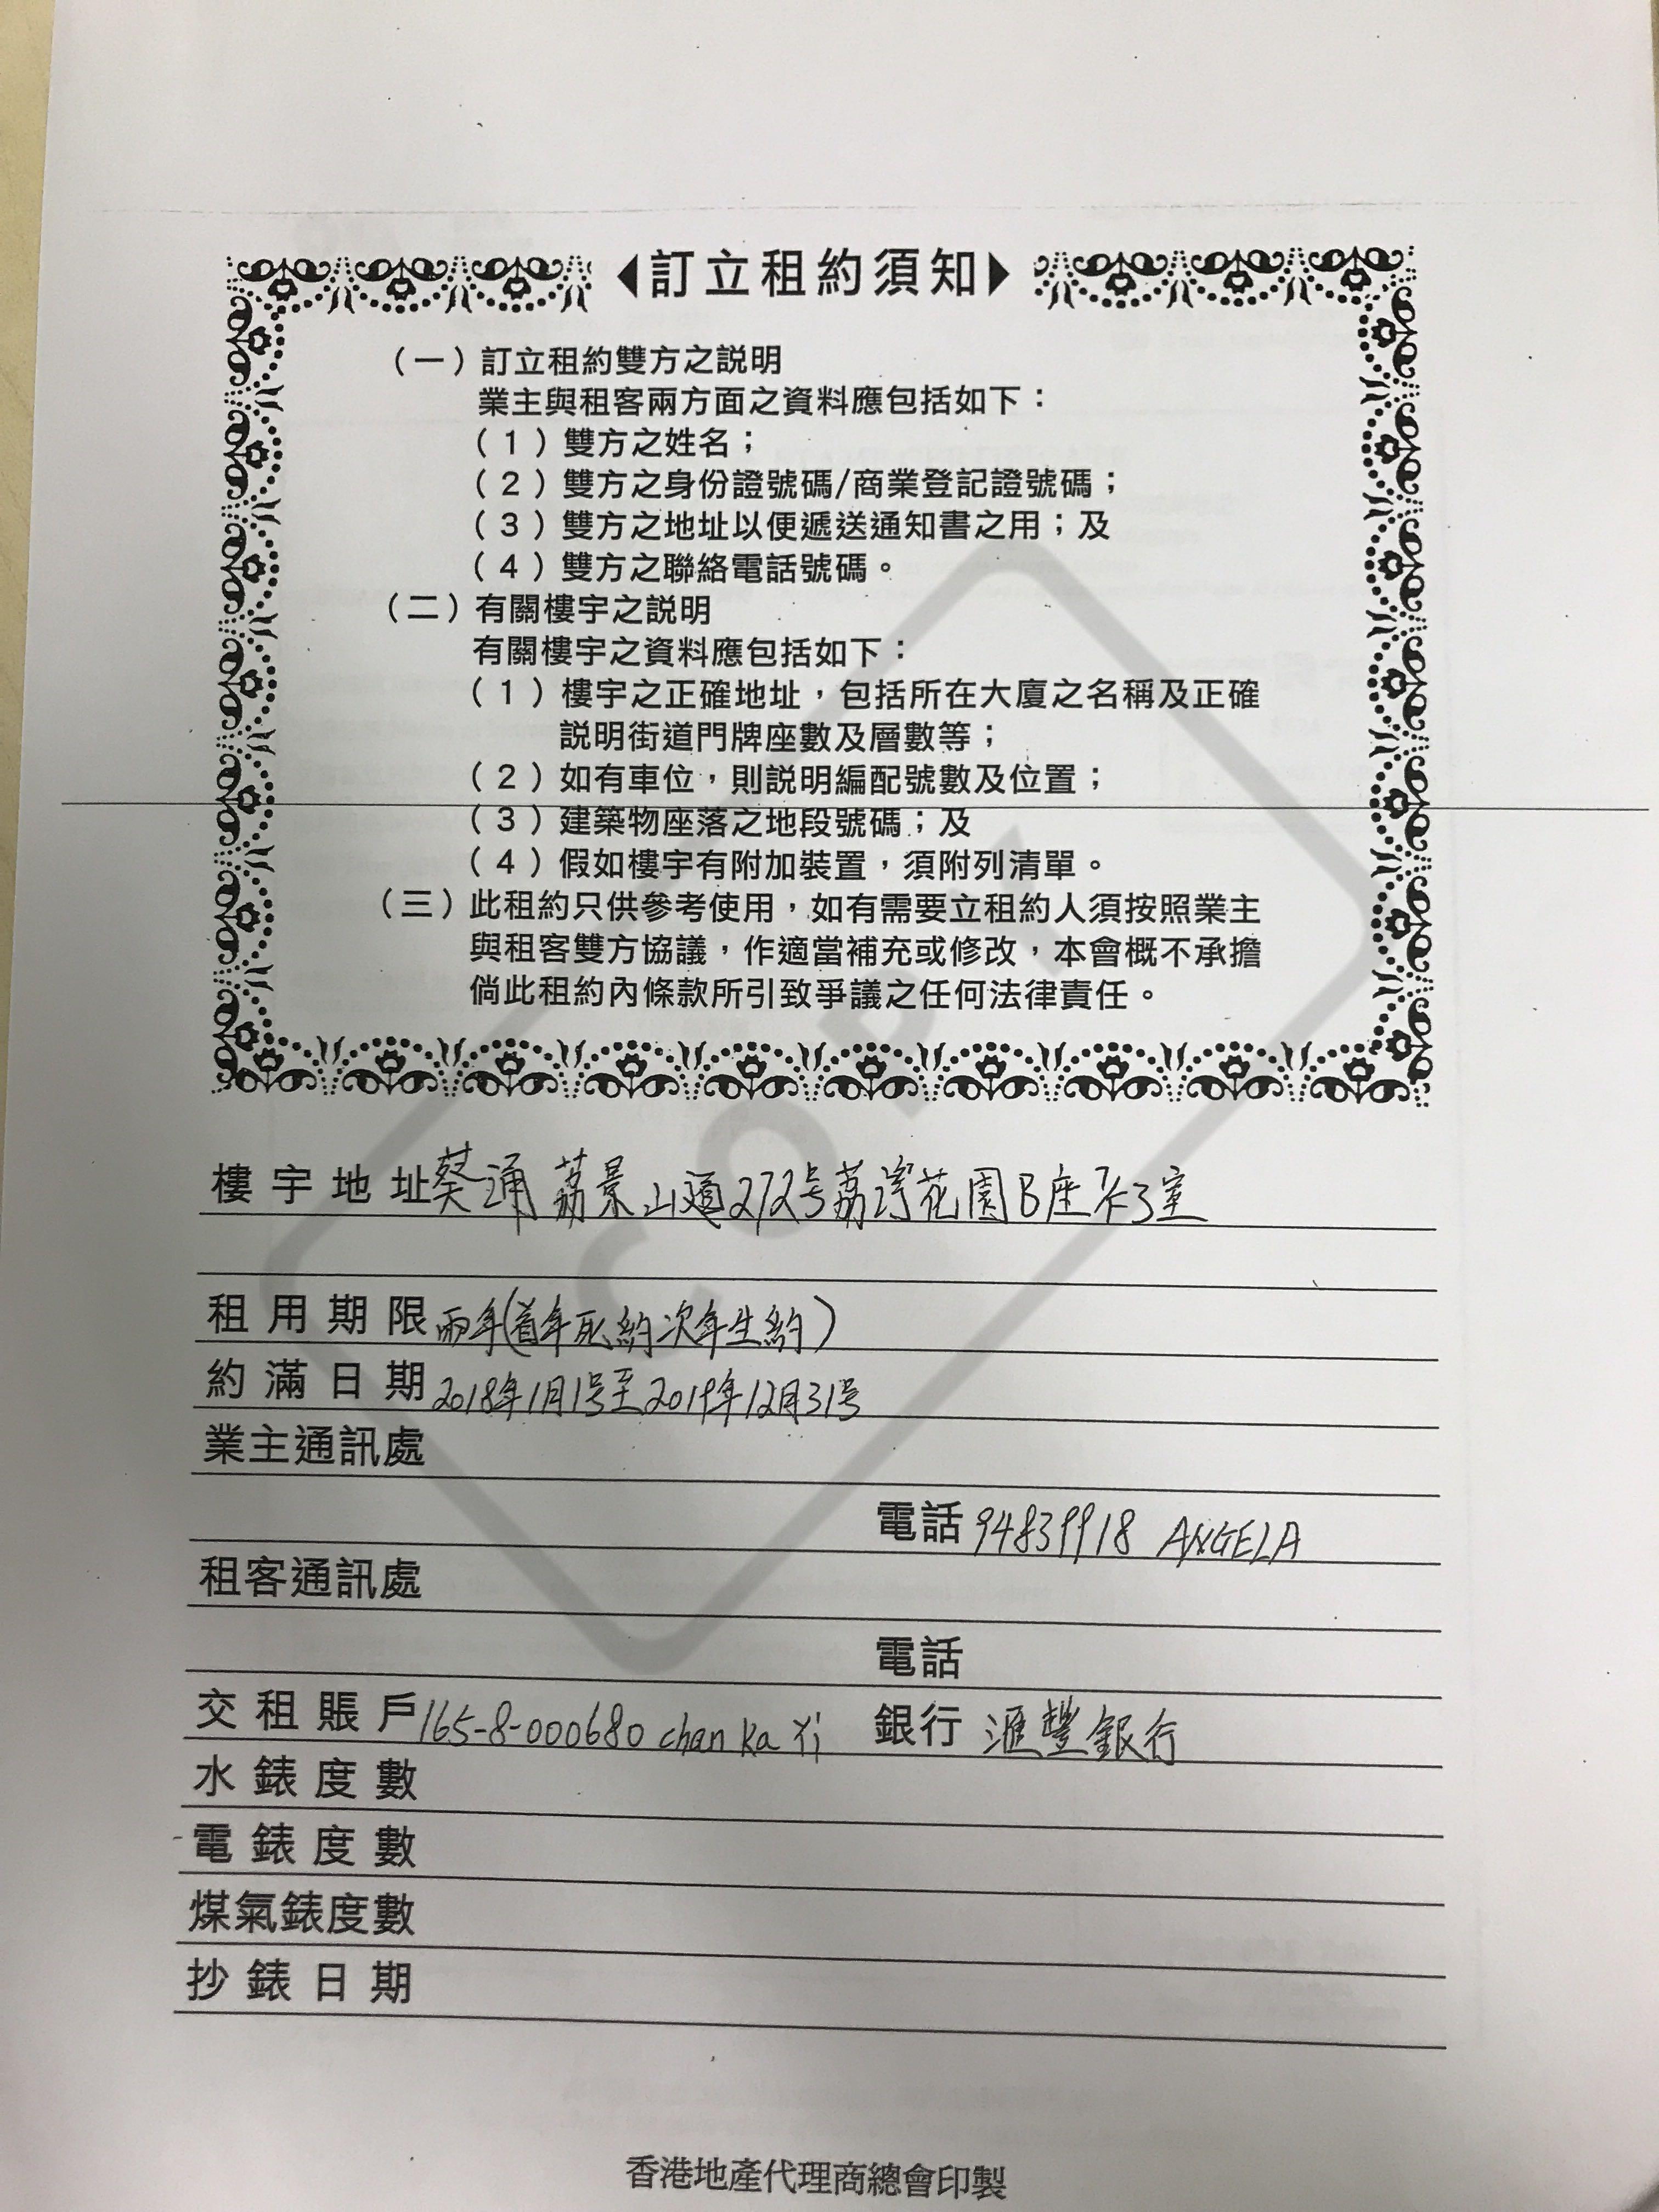 訂立租約須知
（一）訂立租約雙方之説明
業主與租客兩方面之資料應包括如下：
（1）雙方之姓名；
（2）雙方之身份證號碼/商業登記證號碼；
（3）雙方之地址以便遞送通知書之用；及
（4）雙方之聯絡電話號碼。
（二）有關樓宇之説明
有關樓宇之資料應包括如下：
（1）樓宇之正確地址，包括所在大廈之名稱及正確
説明街道門牌座數及層數等；
（2）如有車位，則説明編配號數及位置；
（3）建築物座落之地段號碼；及
（4）假如樓宇有附加裝置，須附列清單。
（三）此租約只供參考使用，如有需要立租約人須按照業主
與租客雙方協議，作適當補充或修改，本會概不承擔
倘此租約內條款所引致爭議之任何法律責任。
COPY
樓宇地址 葵涌荔景山道272号荔灣花園B座 室
租用期限 兩年(首年死約次年生約)
約滿日期 2018年1月1号至2019年12月31号
業主通訊處
電話 94839918 ANGELA
租客通訊處
電話
交租賬戶 165-8-000680 chan ka Yi 銀行 滙豐銀行
水錶度數
電錶度數
煤氣錶度數
抄錶日期
香港地產代理商總會印製